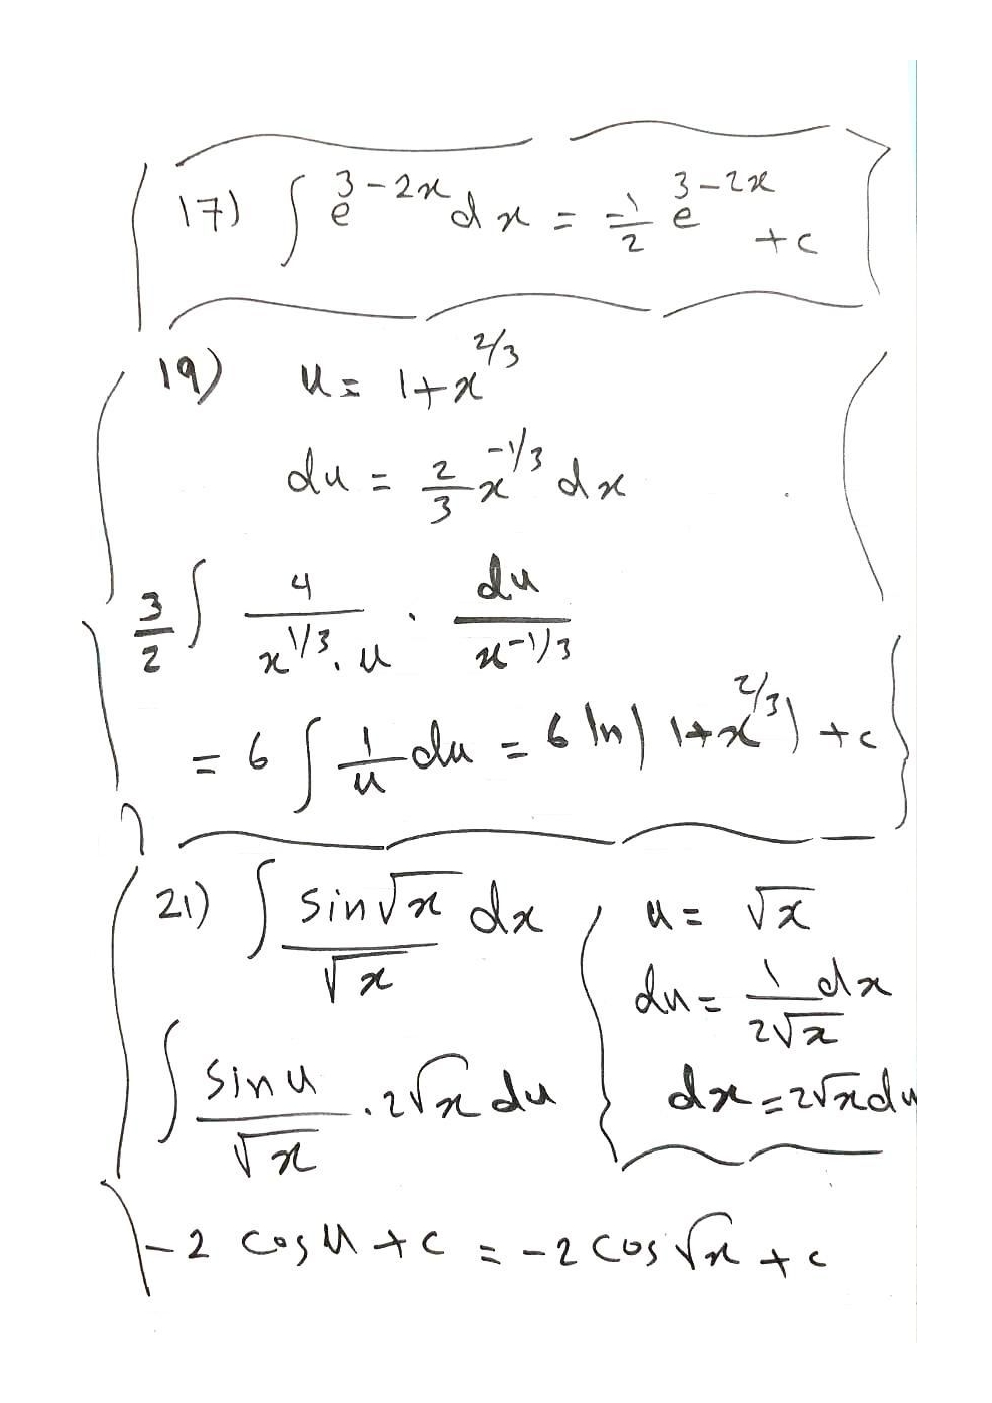 17) ∫ e^(3-2x) dx = -1/2 e^(3-2x) + c
19) u = 1+x^(2/3)
du = 2/3 x^(-1/3) dx
3/2 ∫ 4/(x^(1/3) . u) . du/x^(-1/3)
= 6 ∫ 1/u du = 6 ln| 1+x^(2/3) | + c
21) ∫ sin√x/√x dx
u = √x
du = 1/(2√x) dx
dx = 2√x du
∫ sin u/√x . 2√x du
-2 cos u + c = -2 cos √x + c